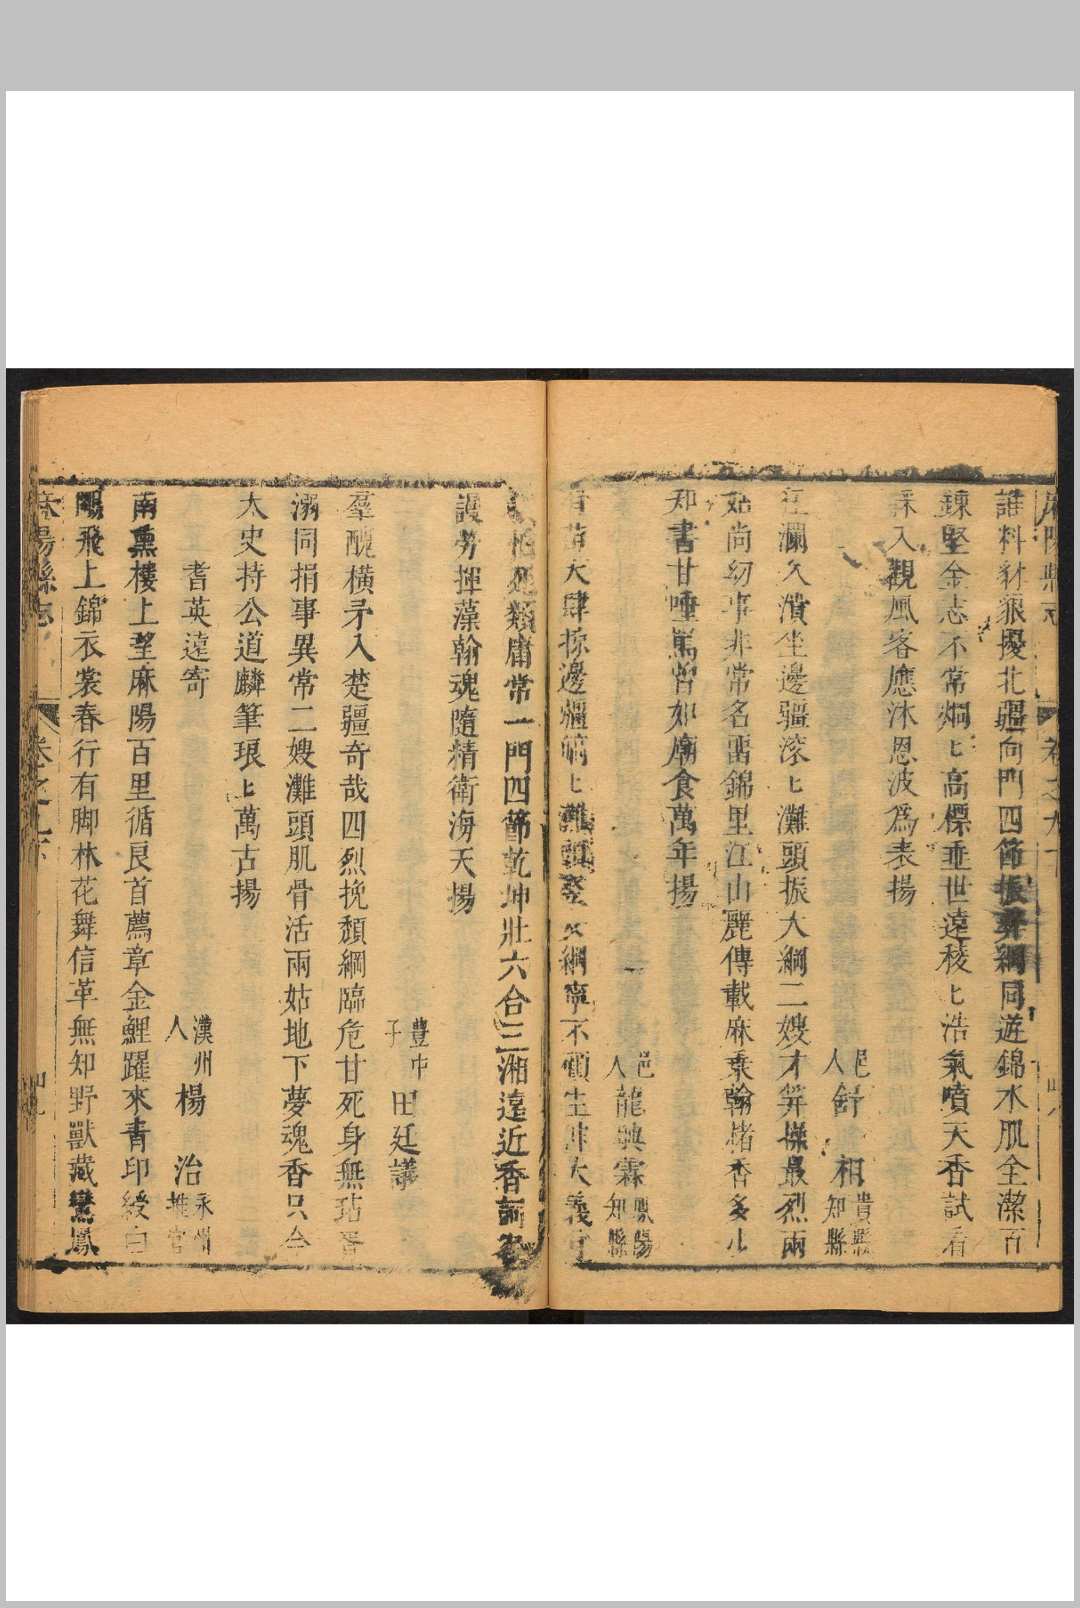 麻陽縣志 卷之九下
誰料豺狼擾北疆向門四節振舜綱同遊錦水肌全潔百
鍊堅金志不常烱匕高標垂世遠稜匕浩氣噴天香試看
採入觀風客應沐恩波爲表揚
邑人 舒相 貴縣知縣
江瀾久潰坐邊疆滚匕灘頭振大綱二嫂才笄操最烈兩
姑尚幼事非常名畱錦里江山麗傳載麻乘翰楮香多少
知書甘唾罵曽如廟食萬年揚
邑人 龍興霖 鳳陽知縣
有苗大肆掠邊疆 匕灘頭 綱寧不顧生 大義
死類庸常一門四節乾坤壯六合三湘遠近香
謾勞揮藻翰魂隨精衛海天揚
豊中子 田廷議
羣醜橫矛入楚疆奇哉四烈挽頹綱臨危甘死身無玷胥
溺同捐事異常二嫂灘頭肌骨活兩姑地下夢魂香只今
太史持公道麟筆琅匕萬古揚
耆英遠寄 漢州人 楊治 永州推官
南薰樓上望麻陽百里循良首薦章金鯉躍來青印綬白
鷴飛上錦衣裳春行有脚林花舞信革無知野獸藏鸞鳳
麻陽縣志 卷之九下